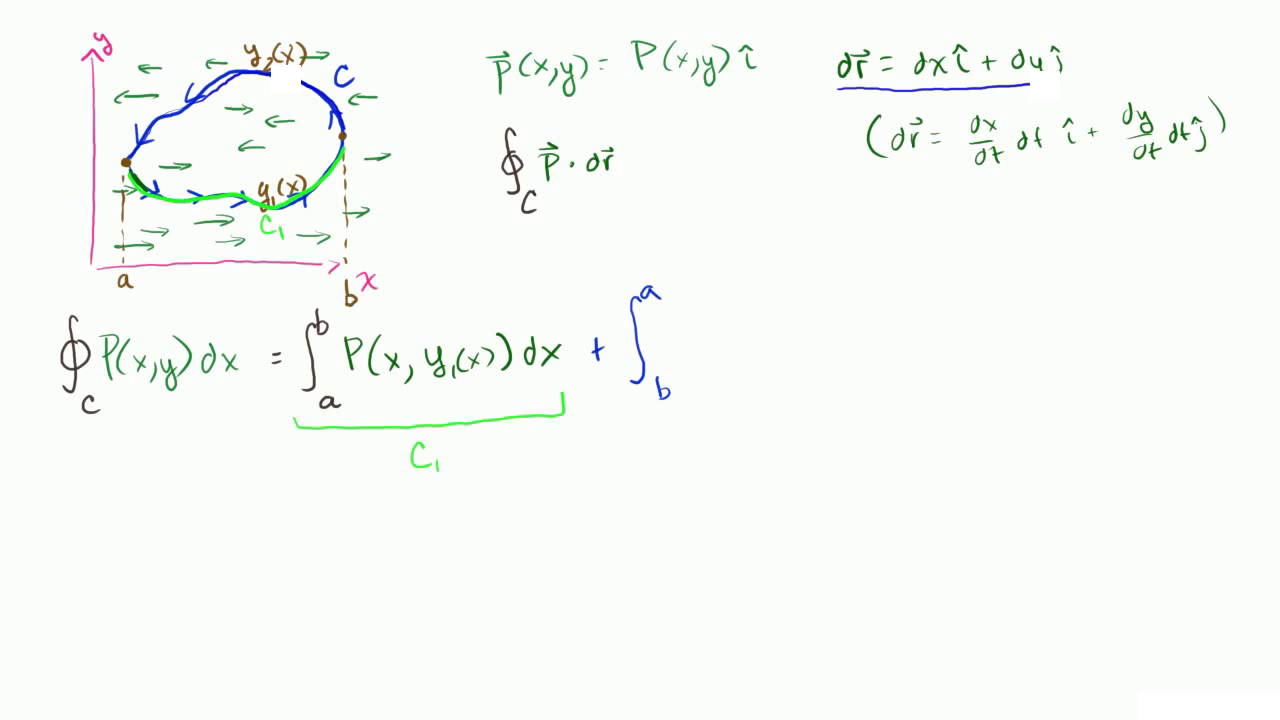 y
y₂(x)
C
y₁(x)
C₁
a
b
x
P⃗(x,y) = P(x,y) î
∮_C P⃗ · dr⃗
dr⃗ = dx î + dy ĵ
(dr⃗ = dx/dt dt î + dy/dt dt ĵ)
∮_C P(x,y) dx = ∫_a^b P(x, y₁(x)) dx + ∫_b^a
C₁